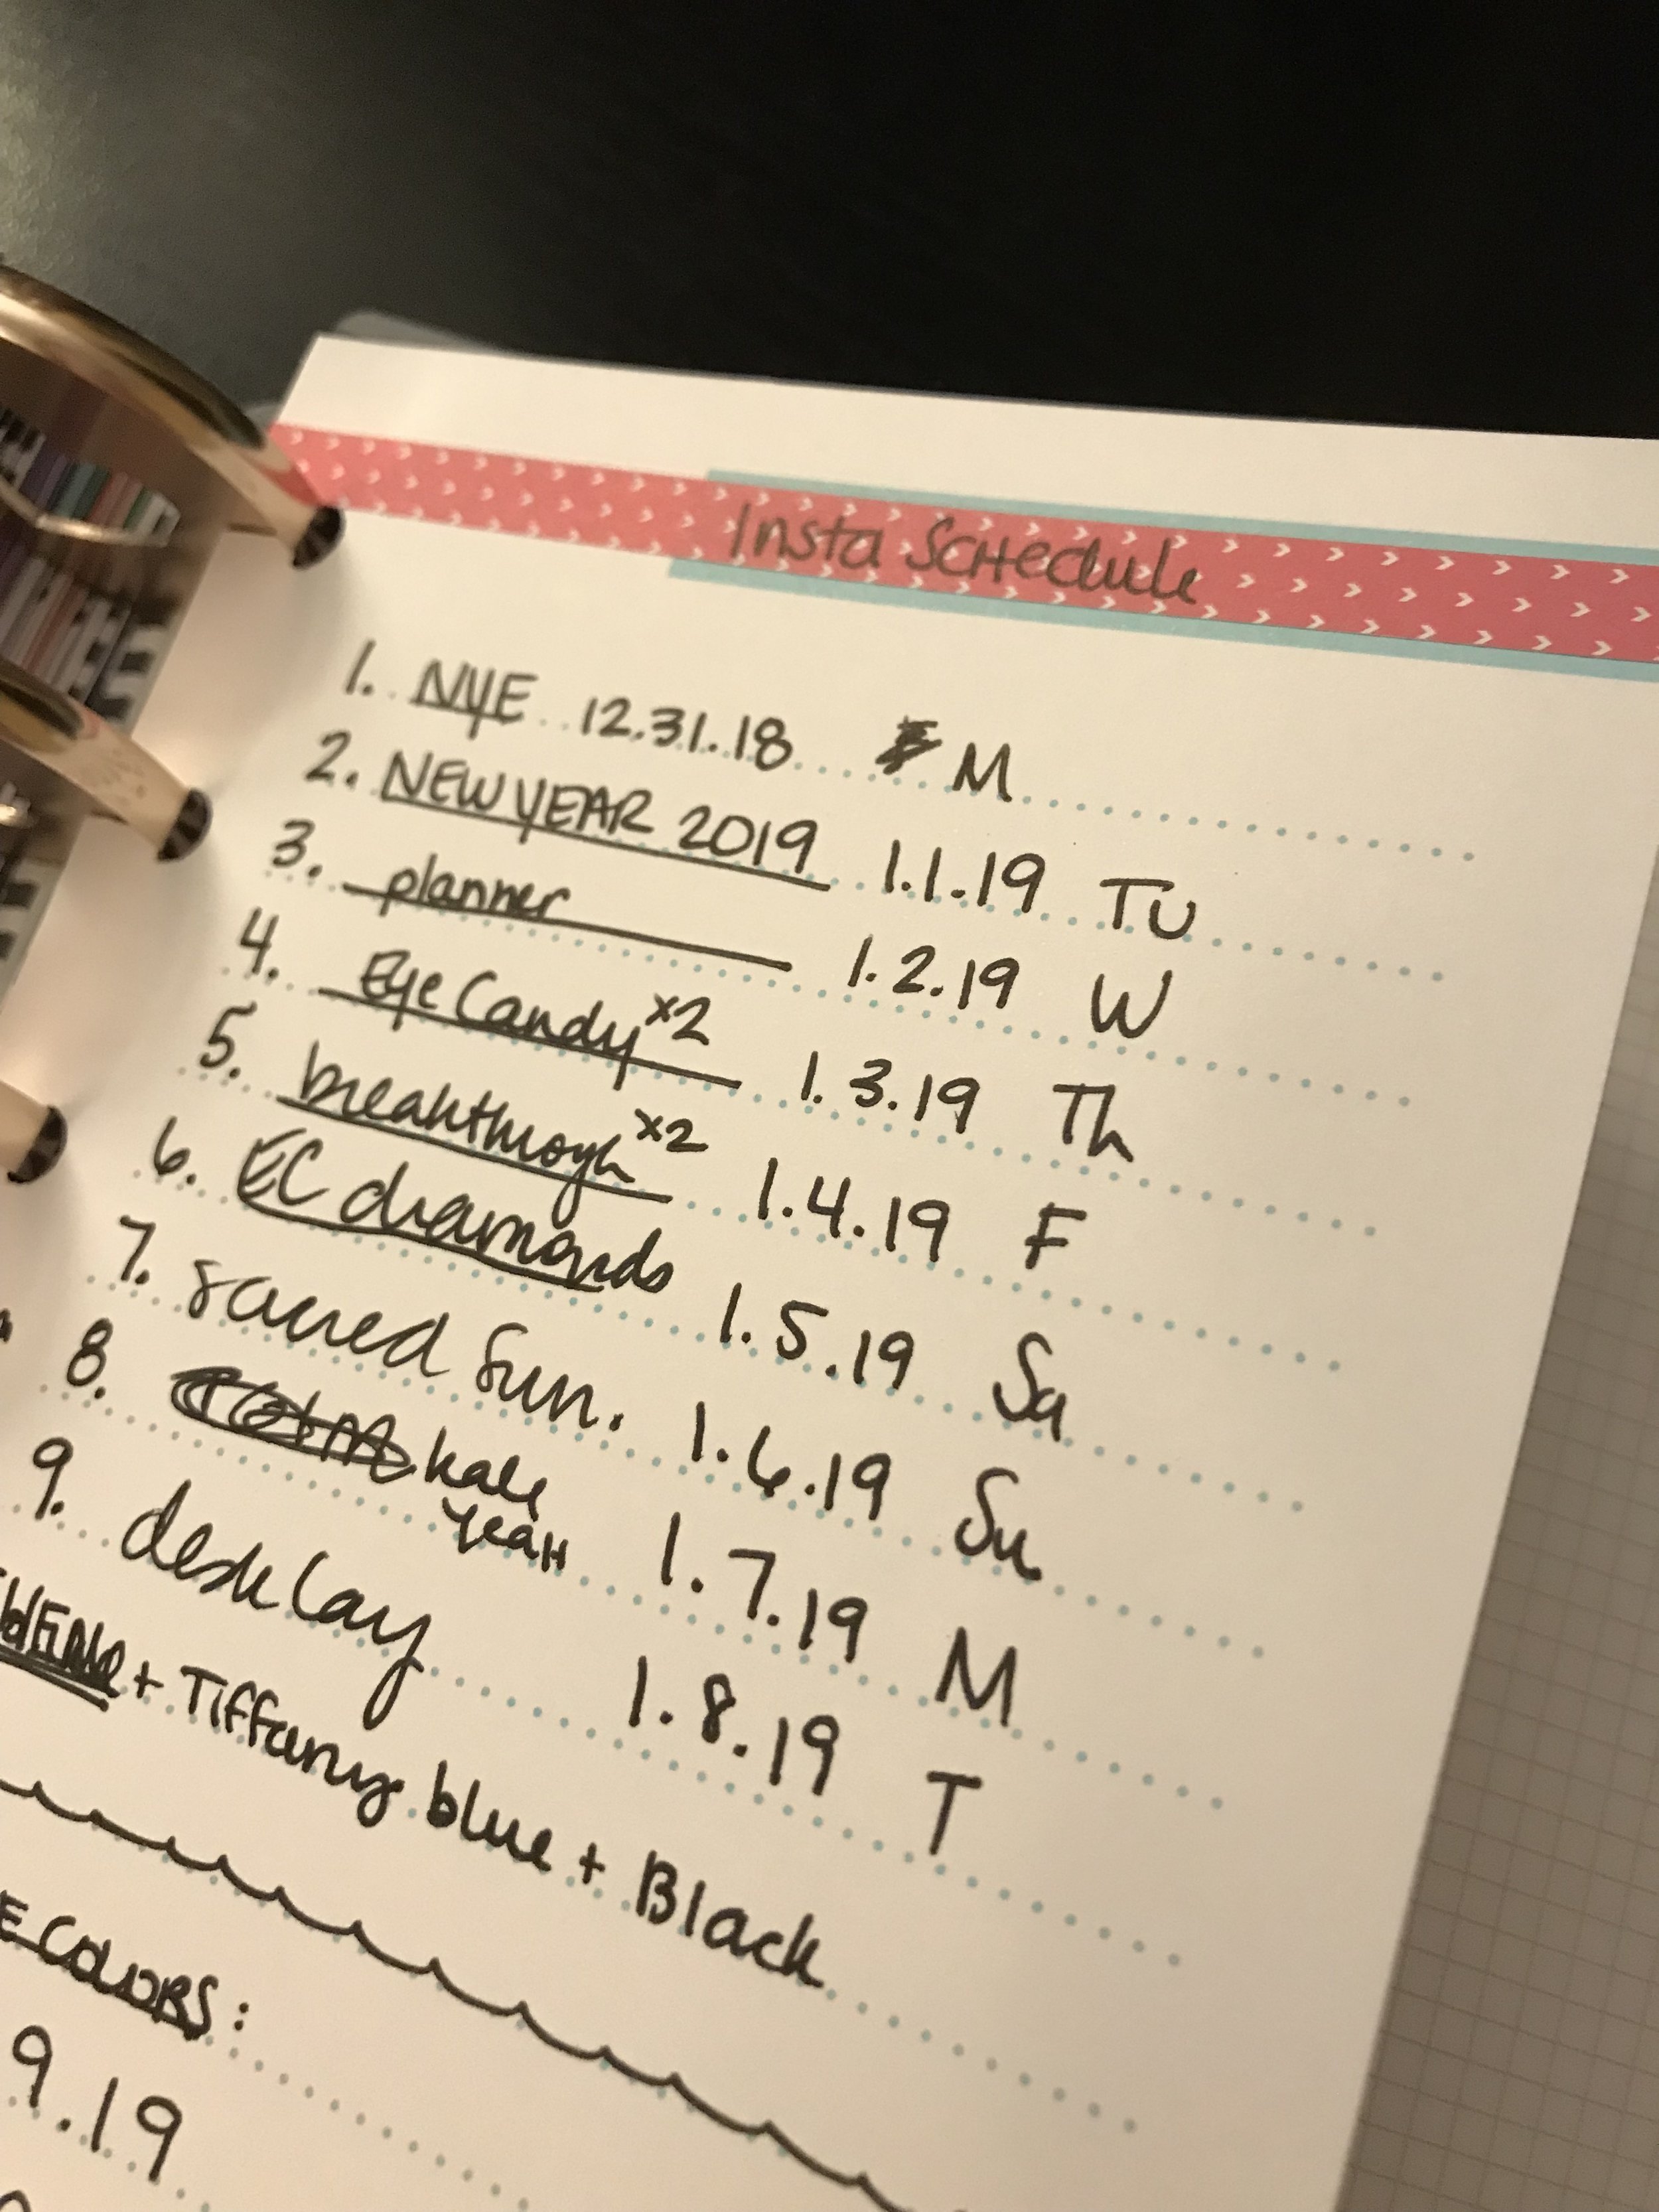 Insta SCHedule
1. NYE 12.31.18 M
2. NEW YEAR 2019 1.1.19 TU
3. planner 1.2.19 W
4. Eye Candy x2 1.3.19 Th
5. breakthrough x2 1.4.19 F
6. EC diamonds 1.5.19 Sa
7. sacred Sun. 1.6.19 Su
8. kale yeaH 1.7.19 M
9. desk lay 1.8.19 T
+ Tiffany blue + Black
COLORS:
9.19